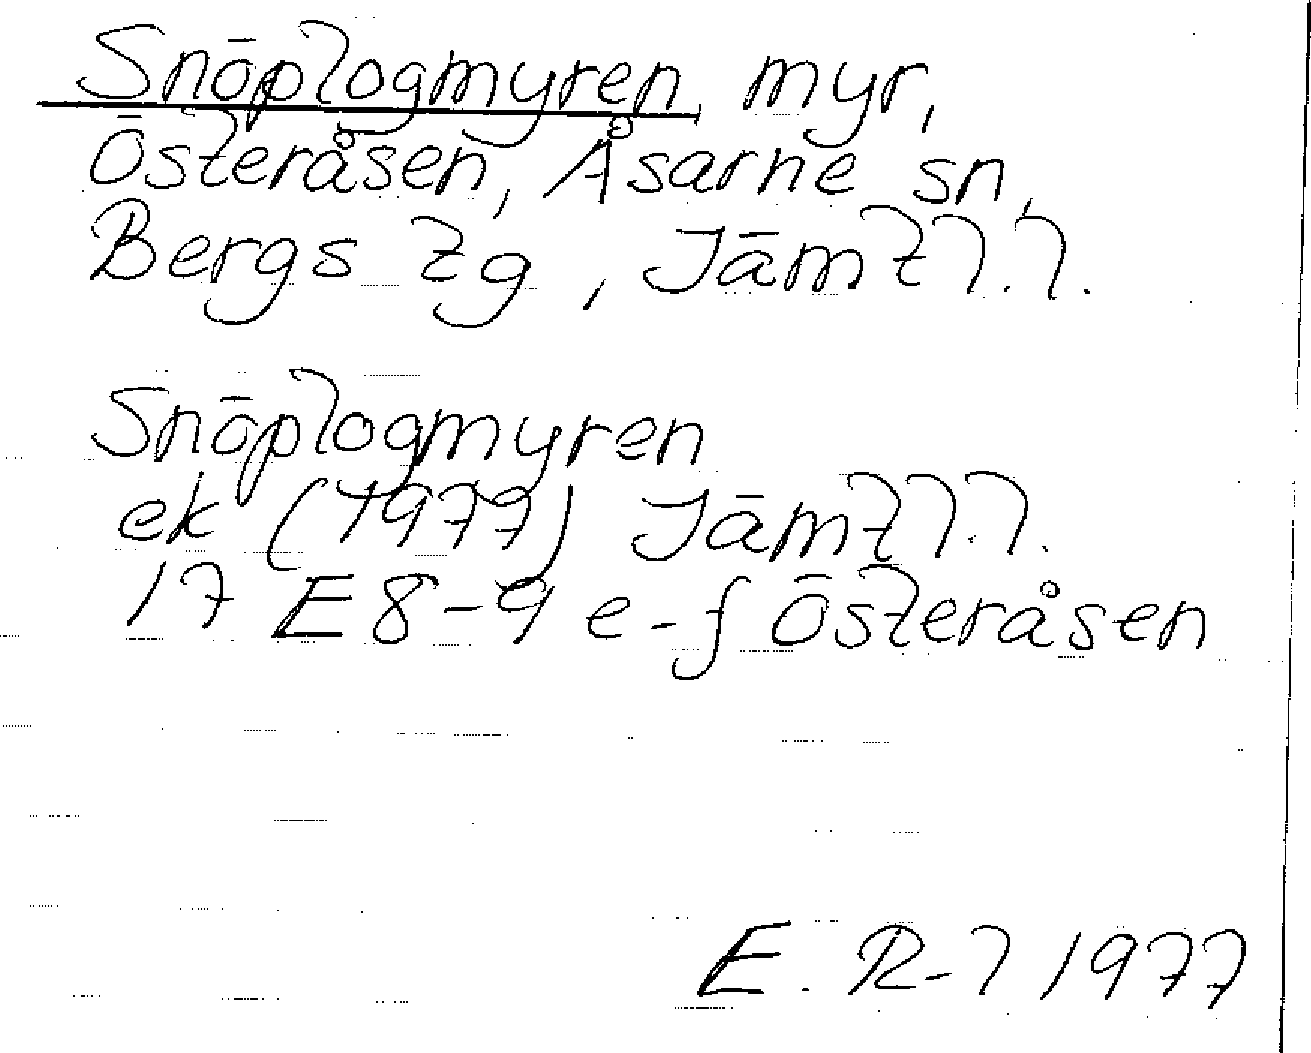 Snöplogmyren myr,
Österåsen, Åsarne sn,
Bergs tg, Jämtl. l.
Snöplogmyren
ek (1977) Jämtl. l.
17 E 8-9 e-f Österåsen
E. R-l 1977